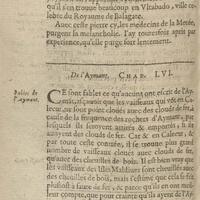 qu'il s'en trouue beaucoup en Vltabado, ville ce-
lebre du Royaume de Balagate.
Auec cette pierre cy, les medecins de la Mende,
purgent la melancholie. I'ay toutesfois apris par
experience, qu'elle purge fort lentement.
De l'Aymant, CHAP. LVI.
Fables de
l'Aymant.
CE sont fables ce qu'aucuns ont escrit de l'Ay-
mant, à sçauoir que les vaisseaux qui vont en Ca-
lecut, ou sont point cloués auec des clouds de fer, à
cause de la frequence des rochers d'Aymant, par
lesquels ils seroyent attirés & emportés s'il y
auoit des clouds de fer. Car & en Calecut, & par
toute cette contrée, il se trouue plus grand
nombre de vaisseaux cloués auec des clouds, que
auec des cheuilles de bois. Il est bien vray que
les vaisseaux des Isles Maldiuars sont cloués auec
des cheuilles de bois, mais i'estime que cela se fait
plustost à faute de fer, & parce qu'ils en ont meil-
leur conte, que pour crainte qu'ils ayent de l'Ay-